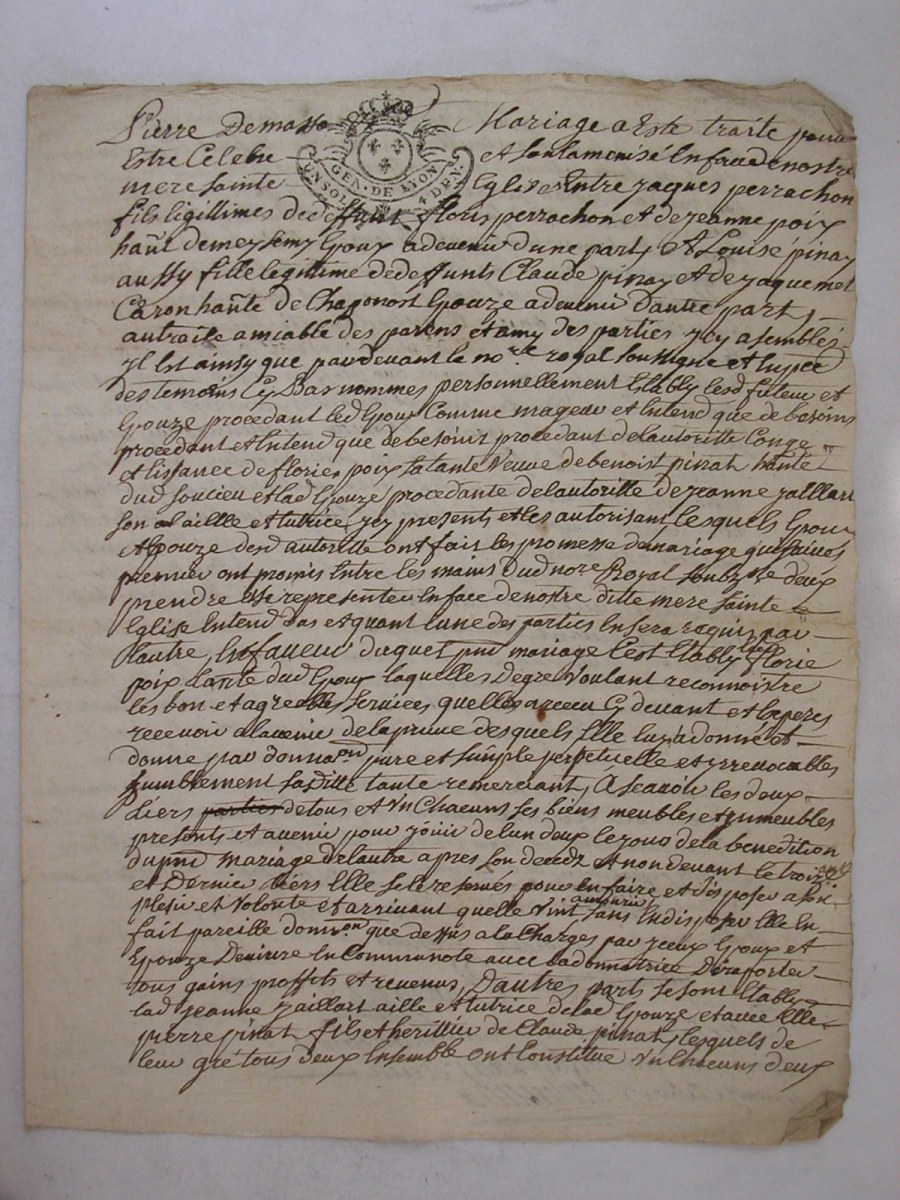 Pierre Demasso Mariage a Este traité pour
GEN · DE LYON
UN SOL 4 DEN.
Estre Celebre et Sollamenisé En face de nostre
mere Sainte Eglise Entre Jaques perrachon
fils ligillimes de deffunt floris perrachon et de Jeanne poix
hant de mey Epoux advenir dune part Et Louise pinay
aussy fille legittime de deffunts Claude pinay et de Jaquemet
Caron hante de Chagonost Epouze advenir dautre part
au traité amiable des parens et amy des parties yey asemblés
Il Est ainsy que par devant le no.re royal Soussigné et
des temoins Cy Bas nommes personnellement Etably lesd futeur et
Epouze procedant led Epoux Comme mageur et Entend que de besoins
procedant et Entend que de besoins procedant de lautoritte Conge
et lissance de florie poix Sa tante veuve de benoist pinat hante
dud Soucieu et lad Epouze procedante de lautoritte de Jeanne Jaillart
Son aillle et tuttrice yey presents et les autorisant lesquels Epoux
et Epouze desd autoritte ont fait les promesse de mariage
premier ont promis Entre les mains dud nore Royal Soubz.ne deux
prendre et se representer En face de nostre ditte mere Sainte
Eglise Entend das et quant lune des parties En Sera requis par
lautre, En faveur duquel pnt mariage Cest Etably lad florie
poix tante dud Epoux laquelles De gre Voulant reconnoistre
les bon et agreables Services quelles a receu Cy devant et Espere
recevoir a lavenir de la pruve desquels Elle luy a donné et
donne par donna.on pure et Simple perpetuelle et yrrevocables
humblement Sa ditte tante remerciant, A Scavoir les deux
tiers de tous et Un Chacuns Ses biens meubles et ymmeubles
presents et avenir pour Jouir de lun deux le jour de la benedition
du pnt mariage de lautre apres Son decedz et non devant le troiz.e
et Dernier tiers Elle Se le reservés pour En faire et dis poser a Son
plesir et Volonté et arrivant quelle Vint a mourir Sans En disposer Elle En
fait pareille dona.on que dessus a la Charges par yceux Epoux et
Epouze De vivre En Communote avec la donnatrice De raporter
tous gains proffits et revenus, Dautres parts Se Sont Etably
lad Jeanne Jaillart aille et tutrice de lad Epouze et avec Elle
pierre pinat fils et herittier de Claude pinat lesquels de
leur gré tous deux Ensemble ont Constitue Un Chacuns deux